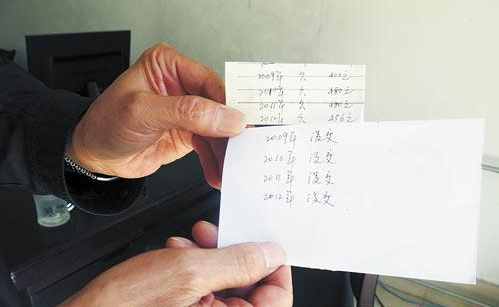 2009年 欠 400元
2010年 欠 480元
2011年 欠 480元
2012年 欠 456元
2009年 没交
2010年 没交
2011年 没交
2012年 没交